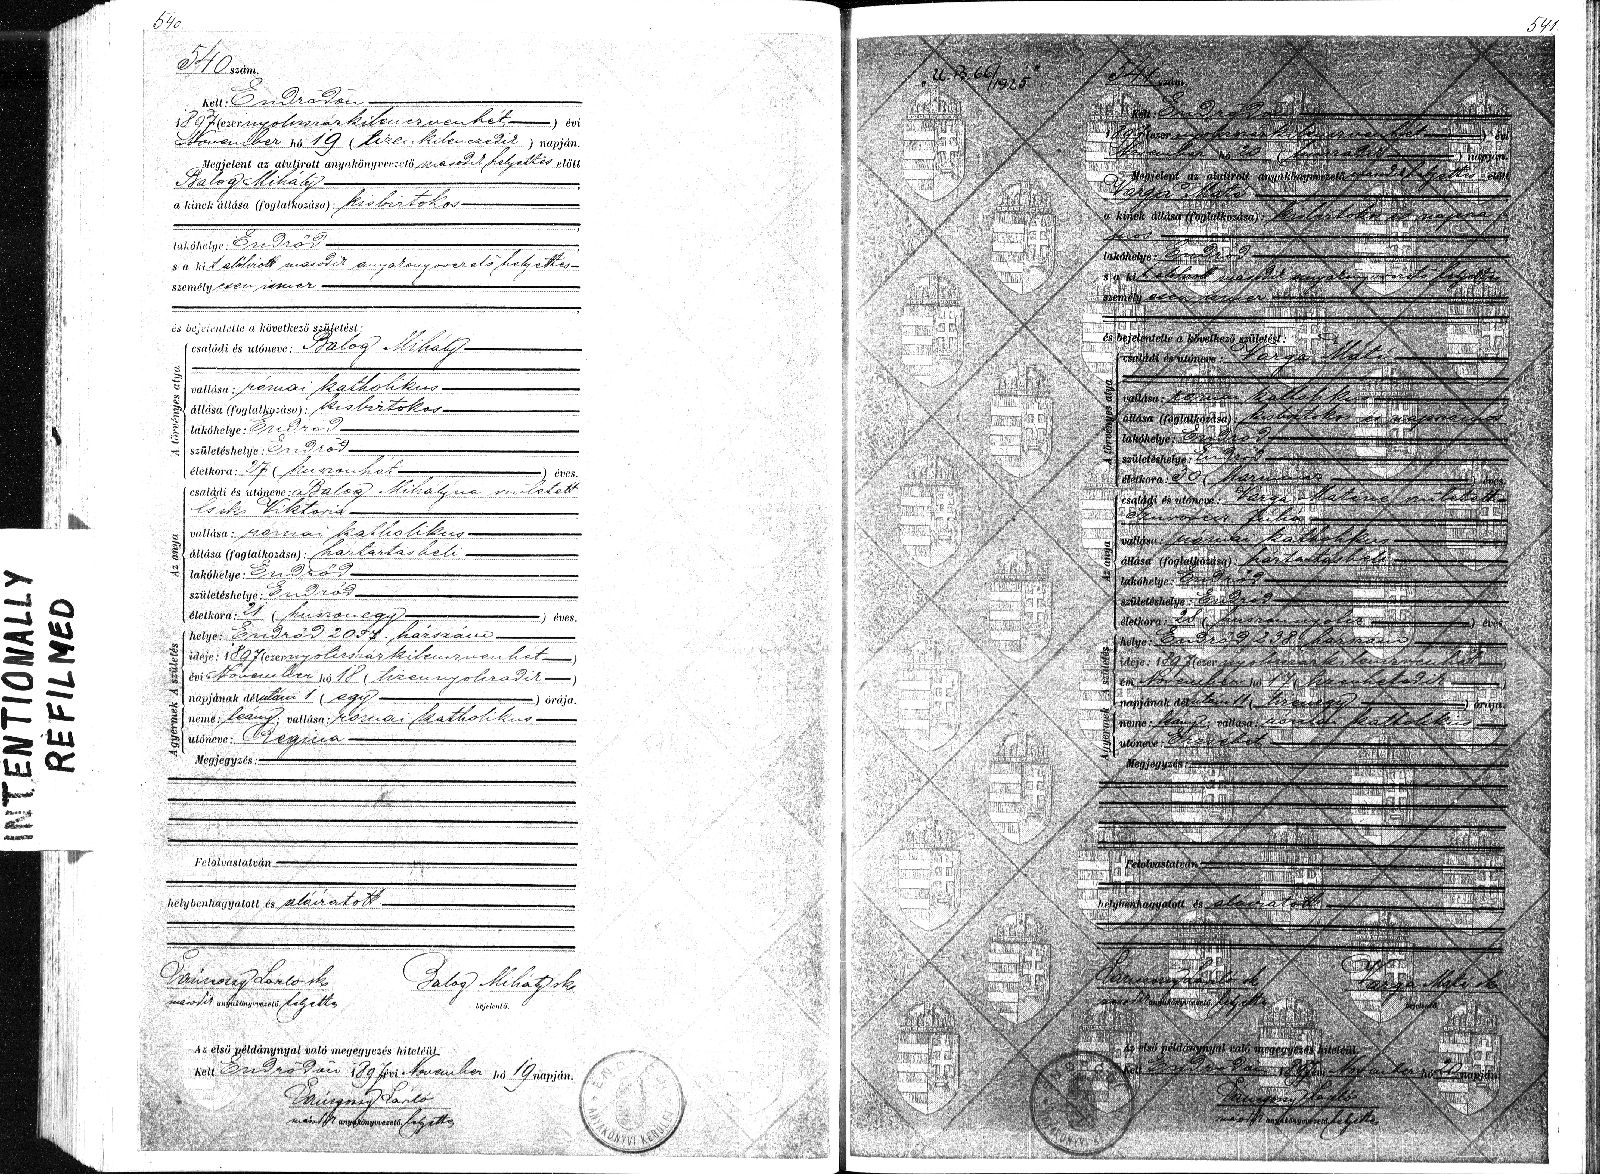 540.
540 szám.
Kelt: Endrődön
1897 (ezernyolczszázkilenczvenhét) évi
November hó 19 (tizenkilenczedik) napján.
Megjelent az alulirott anyakönyvvezető második helyettes előtt
Balog Mihály
a kinek állása (foglalkozása): kisbirtokos
lakóhelye: Endrőd
s a kit alólirott második anyakönyvvezető helyettes
személyesen ismer
és bejelentette a következő születést:
A törvényes atya
családi és utóneve: Balog Mihály
vallása: római katholikus
állása (foglalkozása): kisbirtokos
lakóhelye: Endrőd
születéshelye: Endrőd
életkora: ( huszonhat ) éves.
Az anya
családi és utóneve: Balog Mihályné született
Viktoria
vallása: római katholikus
állása (foglalkozása): háztartásbeli
lakóhelye: Endrőd
születéshelye: Endrőd
életkora: 21 ( huszonegy ) éves.
A gyermek A születés
helye: Endrőd házszám
ideje: 1897 (ezernyolczszázkilenczvenhét)
évi November hó 18 ( tizennyolczadik )
napjának délutáni 1 ( egy ) órája.
neme: leány; vallása: római katholikus
utóneve: Regina
Megjegyzés:
Felolvastatván
helybenhagyatott és aláiratott
László sk Balog Mihály sk
második anyakönyvvezető helyettes bejelentő.
Az első példánynyal való megegyezés hiteléül
Kelt Endrődön 1897 évi November hó 19 napján.
László
második anyakönyvvezető helyettes
ANYAKÖNYVI KERÜLET
541.
541 szám.
Kelt: Endrődön
1897 (ezernyolczszázkilenczvenhét) évi
November hó 20 (huszadik) napján.
Megjelent az alulirott anyakönyvvezető második helyettes előtt
Varga Máté
a kinek állása (foglalkozása): kisbirtokos
lakóhelye: Endrőd
s a kit alólirott második anyakönyvvezető helyettes
személyesen ismer
és bejelentette a következő születést:
A törvényes atya
családi és utóneve: Varga Máté
vallása: római katholikus
állása (foglalkozása): kisbirtokos
lakóhelye: Endrőd
születéshelye: Endrőd
életkora: 30 ( harmincz ) éves.
Az anya
családi és utóneve: Varga Máténé született
vallása: római katholikus
állása (foglalkozása): háztartásbeli
lakóhelye: Endrőd
születéshelye: Endrőd
életkora: ( ) éves.
A gyermek A születés
helye: Endrőd, 238 házszám
ideje: 1897 (ezernyolczszázkilenczvenhét)
évi November hó ( )
napjának délután 11 ( tizenegy ) órája.
neme: vallása: római katholikus
utóneve: Erzsébet
Megjegyzés:
Felolvastatván
helybenhagyatott és aláiratott
László sk Varga Máté sk
második anyakönyvvezető helyettes bejelentő.
Az első példánynyal való megegyezés hiteléül
Kelt Endrődön 1897 évi November hó 20 napján.
László
második anyakönyvvezető helyettes
INTENTIONALLY
REFILMED